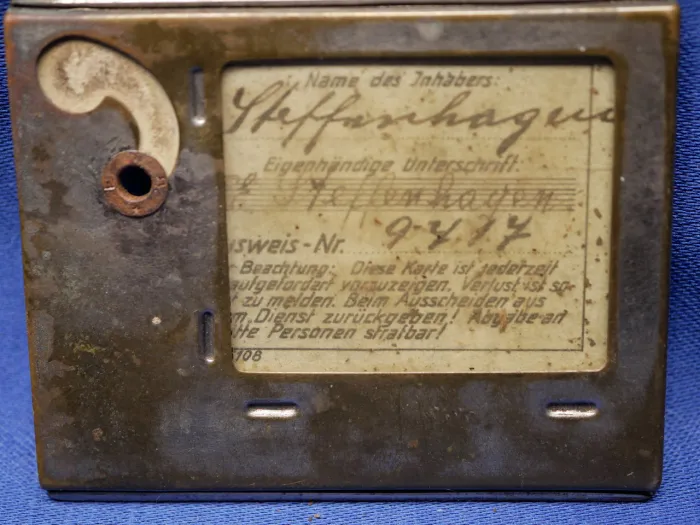 Name des Inhabers:
Steffenhagen
Eigenhändige Unterschrift:
Steffenhagen
sweis-Nr. 9417
Beachtung: Diese Karte ist jederzeit
aufgefordert vorzuzeigen. Verlust ist so-
t zu melden. Beim Ausscheiden aus
m Dienst zurückgeben! Abgabe an
tte Personen strafbar!
108